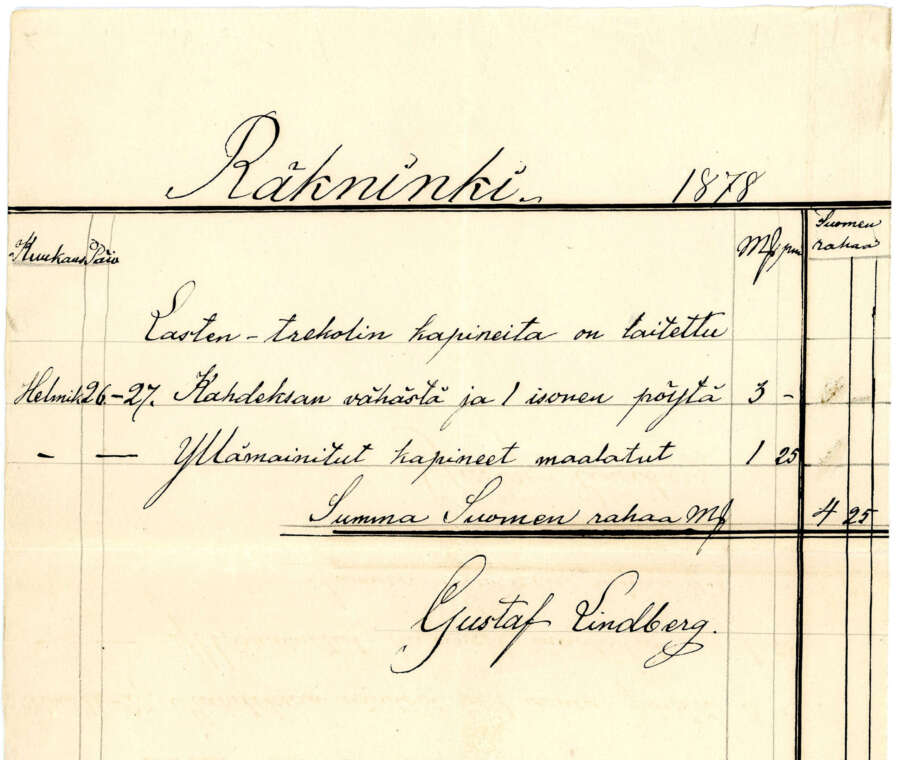 Räkninki. 1878
Kuukaus Päiv Mk pni Suomen
rahaa
Lasten-trekolin kapineita on laitettu
Helmik 26.-27. Kahdeksan vähästä ja 1 isonen pöytä 3 -
- — Yllämainitut kapineet maalatut 1 25
Summa Suomen rahaa Mk 4 25
Gustaf Lindberg.